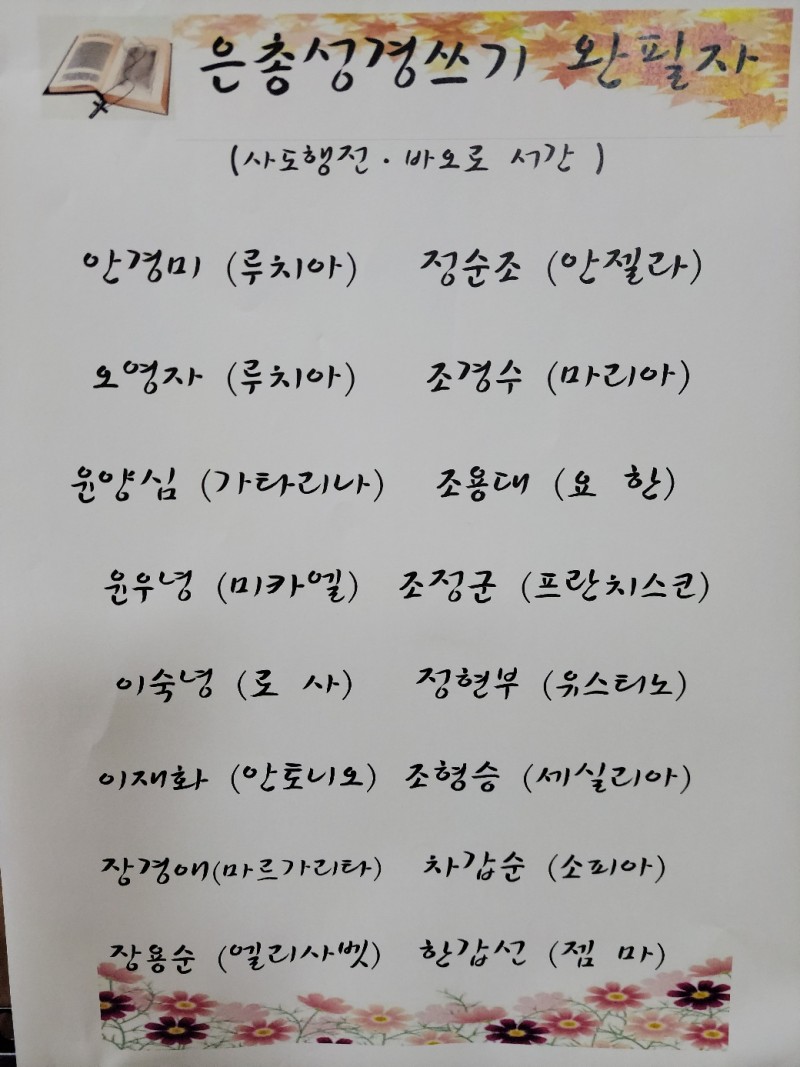 은총성경쓰기 완필자
(사도행전 · 바오로 서간)
안경미 (루치아) 정순조 (안젤라)
오영자 (루치아) 조경수 (마리아)
윤양심 (가타리나) 조용대 (요 한)
윤우녕 (미카엘) 조정군 (프란치스코)
이숙녕 (로 사) 정현부 (유스티노)
이재화 (안토니오) 조형승 (세실리아)
장경애(마르가리타) 차갑순 (소피아)
장용순 (엘리사벳) 한갑선 (젬 마)